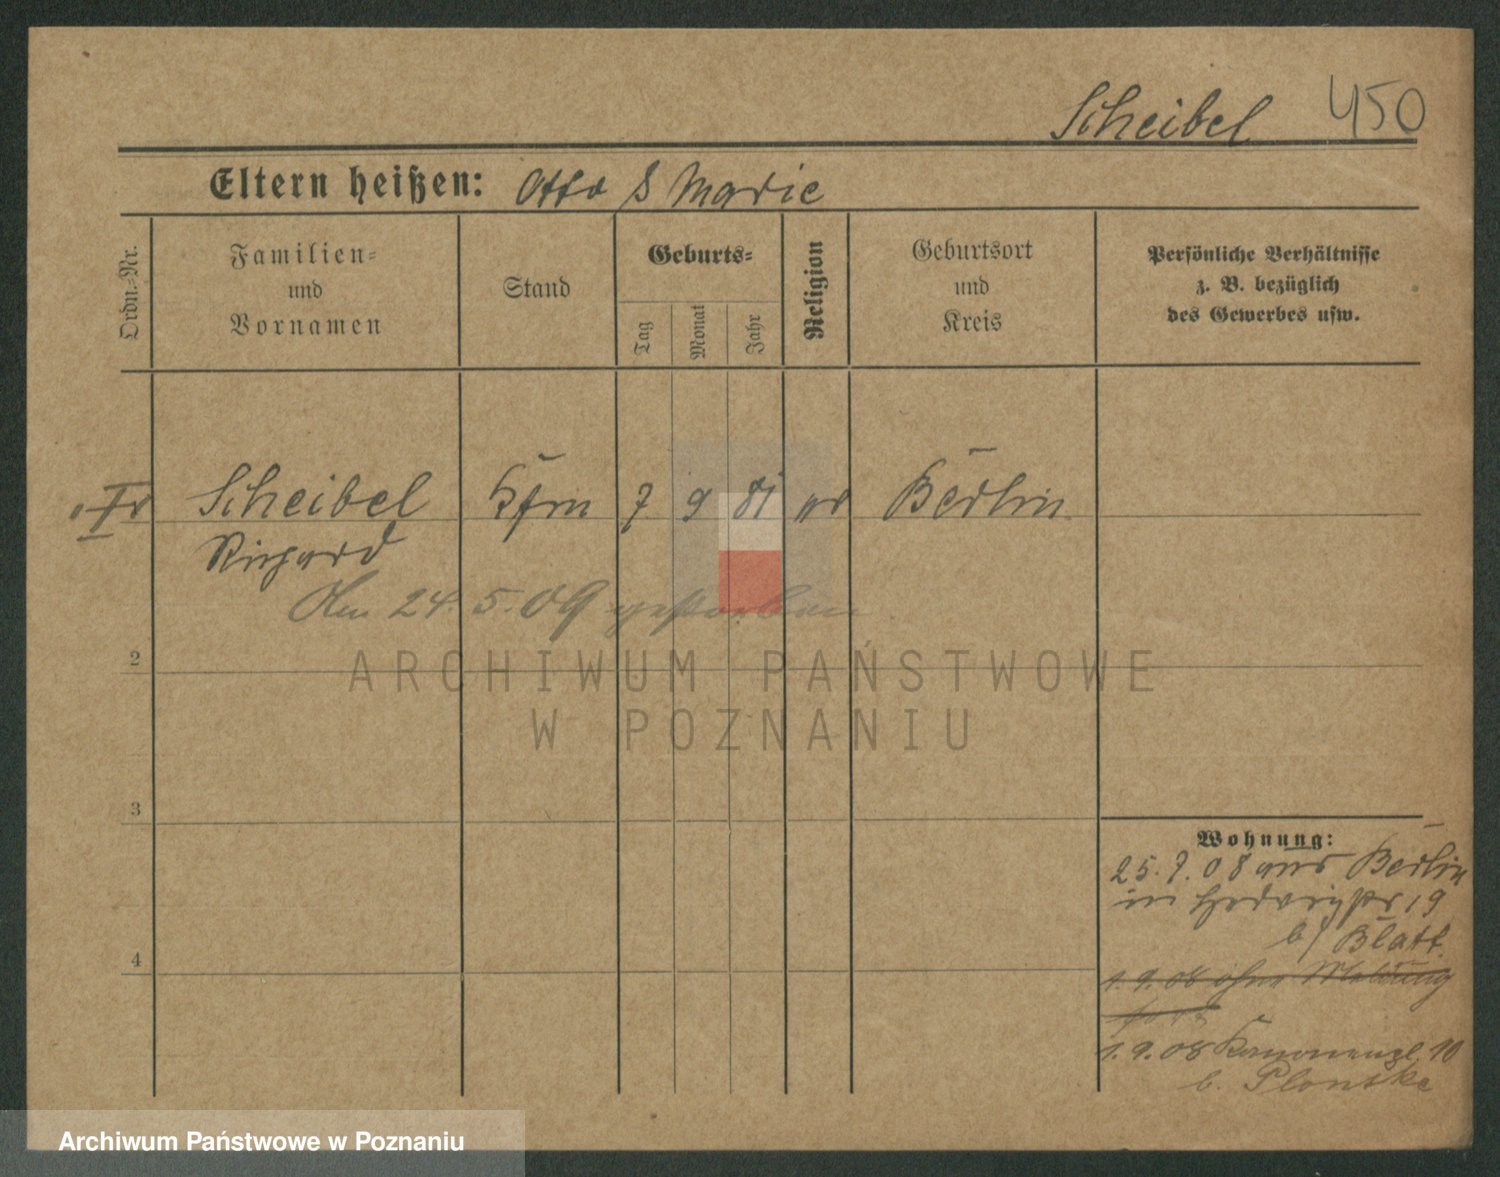 Scheibel 450
Eltern heißen: Otto & Marie
Ordn.-Nr.
Familien-
und
Vornamen
Stand
Geburts-
Tag
Monat
Jahr
Religion
Geburtsort
und
Kreis
Persönliche Verhältnisse
z. B. bezüglich
des Gewerbes usw.
Scheibel Kfm 7 9 81 Berlin
Richard
Am 24. 5. 09 gestorben
2
3
4
Wohnung:
25. 7. 08 aus Berlin
in Hedwigstr 19
b/ Blatt.
1. 9. 08 ohne Meldung
fort
1. 9. 08 10
b. Plonske
ARCHIWUM PAŃSTWOWE
W POZNANIU
Archiwum Państwowe w Poznaniu